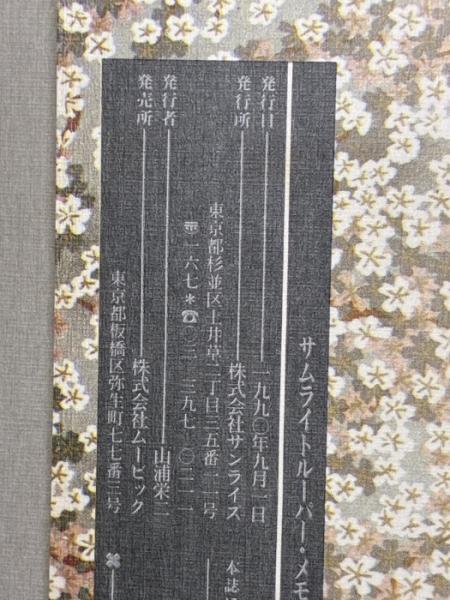 サムライトルーパー・メモ
発行日 一九九〇年九月一日
発行所 株式会社サンライズ
東京都杉並区上井草二丁目三五番一一号
〒一六七＊☎〇三‐三九七‐〇二一一
発行者 山浦栄二
発売所 株式会社ムービック
東京都板橋区弥生町七七番三号
本誌